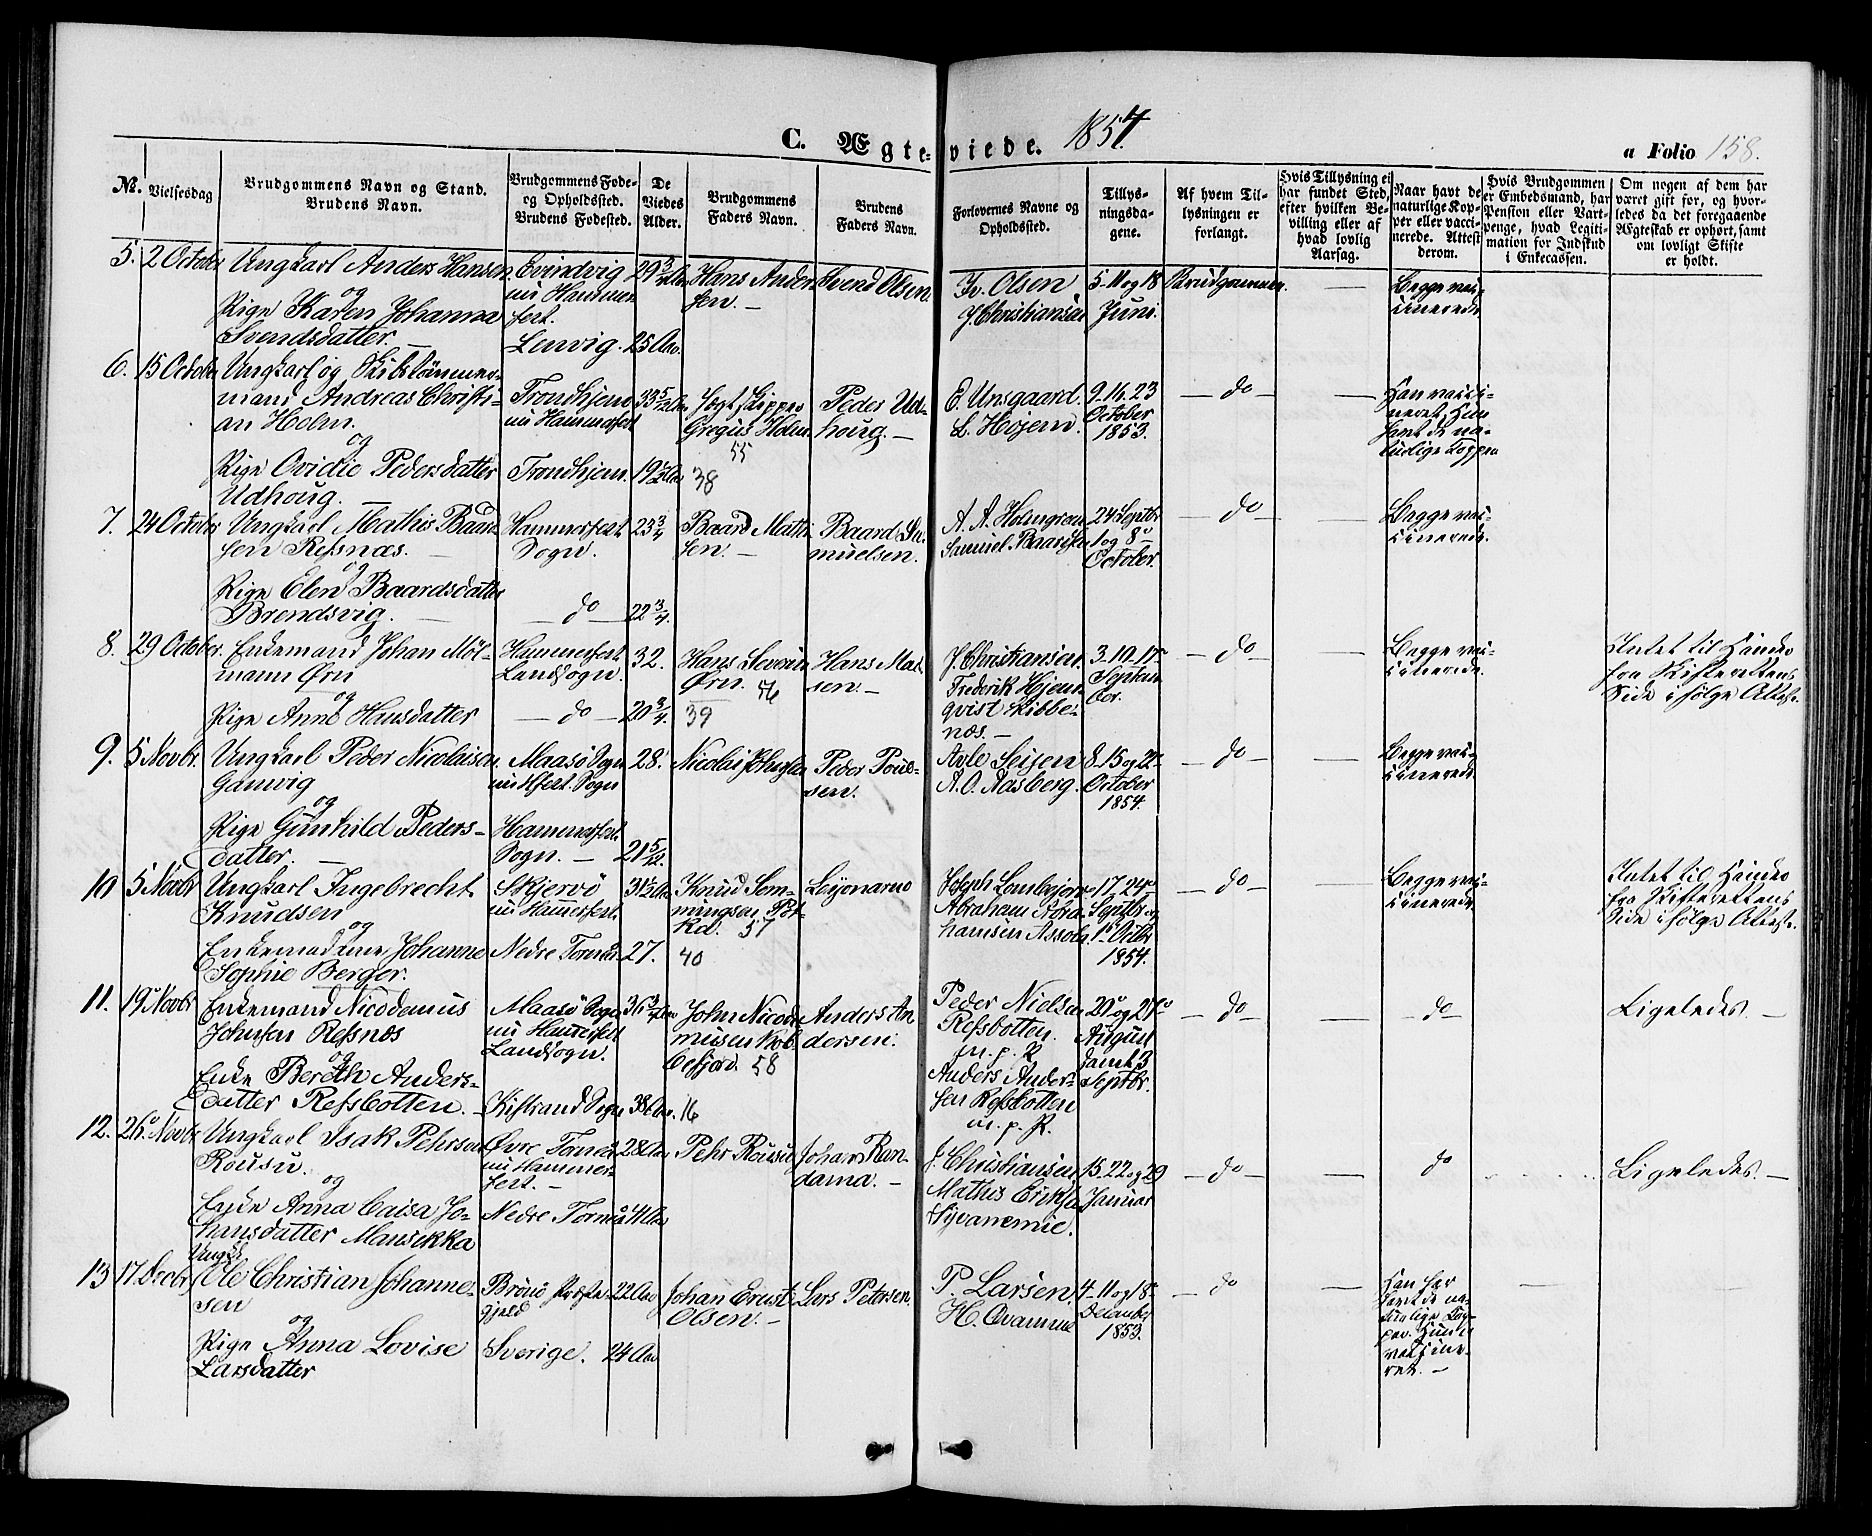 C. Ægteviede. 1854.
a Folio 158.
No.
Vielsesdag
Brudgommens Navn og Stand.
Brudens Navn.
Brudgommens Føde-
og Opholdssted.
Brudens Fødested.
De
Viedes
Alder.
Brudgommens
Faders Navn.
Brudens
Faders Navn.
Forlovernes Navne og
Opholdssted.
Tillys-
ningsda-
gene.
Af hvem Til-
lysningen er
forlangt.
Hvis Tillysning ei
har fundet Sted,
efter hvilken Be-
villing eller af
hvad lovlig
Aarsag.
Naar havt de
naturlige Kop-
per eller vacci-
nerede. Attest
derom.
Hvis Brudgommen
er Embedsmand, har
Pension eller Vart-
penge, hvad Legiti-
mation for Indskud
i Enkecassen.
Om nogen af dem har
været gift for, og hvor-
ledes da det foregaaende
Ægteskab er ophørt, samt
om lovligt Skifte
er holdt.
5. 2 October
Ungkarl Anders Hansen
og
Pige Karen Johanna
Svendsdatter.
Evindvig
nu Hammer
fest.
Lenvig.
25 Aar.
Hans Ander
sen. —
Svend Olsen.
Iv. Olsen
J. Christiansen
5-11 og 18
Juni.
Brudgommen.
—
Begge vac-
cinerede.
6. 15 October
Ungkarl og Skibstømmer-
mand Andreas Christi-
an Holm.
og
Pige Ovidie Pedersdatter
Udhoug. —
Trondhjem
nu Hammerfest
Trondhjem.
33 5/12 Aar
19 1/2 Aar
Jægt skipper
Gregus Holm.
55
38
Peder Ud-
houg. —
E. Unsgaard.
L. Højem.
9. 16. 23
October
1853.
— do —
—
Han vacci-
neret, Hun
havt de na-
turlige Kopper
7. 24 October
Ungkarl Mathis Baard
sen Refsnæs. —
og
Pige Elen Baardsdatter
Brendsvig. —
Hammerfest
Sogn.
— do —
23 3/4
22 3/4.
Baard Mathi
sen. —
Baard Sa-
muelsen.
A. A. Holmgren
Samuel Baardsen
24 Septbr
1 og 8
October.
— do —
—
Begge vac-
cinerede.
8. 29 October.
Enkemand Johan Møl-
mann Ørn
og
Pige Anne Hansdatter
Hammerfest
Landsogn.
— do —
32.
20 3/4.
Hans Severin
Ørn. 56
39
Hans Mat
sen. —
J. Christiansen.
Frederik Hjem
qvist Kibbe-
næs. —
3-10-17
Septem
ber.
— do —
—
Begge vac-
cinerede.
Intet til Hinder
fra Skifterettens
Side ifølge Attest.
9. 5 Novbr.
Ungkarl Peder Nicolaisen
Gamvig
og
Pige Gunhild Peders-
datter. —
Maasø Sogn
nu Hfest. Sogn
Hammerfest
Sogn. —
28.
21 5/12.
Nicolai Johnsen
Peder Poul-
sen.
Avle Seijen
A. O. Aasberg.
8. 15 og 22
October
1854.
— do —
—
Begge vac-
cinerede
10 5 Novbr
Ungkarl Ingebrecht
Knudsen
og
Enkemadame Johanne
Sophie Berger.
Skjervø
nu Hammerfest.
Nedre Torneå
31 1/2 Aar
27.
Knud Sem-
mingsen
57
40
Joseph
Abraham Abra
hamsen
17. 24
Septbr og
1 Octbr
1854.
— do —
—
Begge vac-
cinerede
Intet til Hinder
fra Skifterettens
Side ifølge Attest.
11. 19 Novbr
Enkemand Nicodemus
Johnsen Refsnæs
og
Enke Bereth Anders-
datter Refsbotten. —
Maasø Sogn
nu Hammerfest
Landsogn.
Kistrand Sogn
36 3/4 Aar
38 Aar.
John Nicode
musen Kob
befjord. 58
16
Anders An
dersen.
Peder Nielsen
Refsbotten.
m. p. P.
Anders Ander-
sen Refsbotten
m. p. P.
20 og 27
August
samt 3
Septbr.
— do —
—
— do —
Ligeledes. —
12. 26 Novbr
Ungkarl Isak Pehrsen
Rousu.
og
Enke Anna Caisa Jo-
hansdatter Mansikka
Øvre Torneå
nu Hammer-
fest. —
Nedre Torneå
28 Aar
41 Aar
Pehr Rousu
Johan Ran-
dama. —
J. Christiansen
Mathis Eriksen
Syvanemie.
15. 22 og 29
Januar
— do —
—
do
Ligeledes. —
13 17 Decbr
Ungk.
Ole Christian Johanne-
sen
og
Pige Anna Lovise
Larsdatter
Brønø Præste-
gjeld
Sverige.
22 Aar
24 Aar
Johan Ernst
Olsen. —
Lars Petersen.
P. Larsen.
H. Qvamme
4-11 og 18
December
1853.
— do
—
Han har
havt de na-
turlige Kop-
per. Hun er
vaccine-
ret. —
—